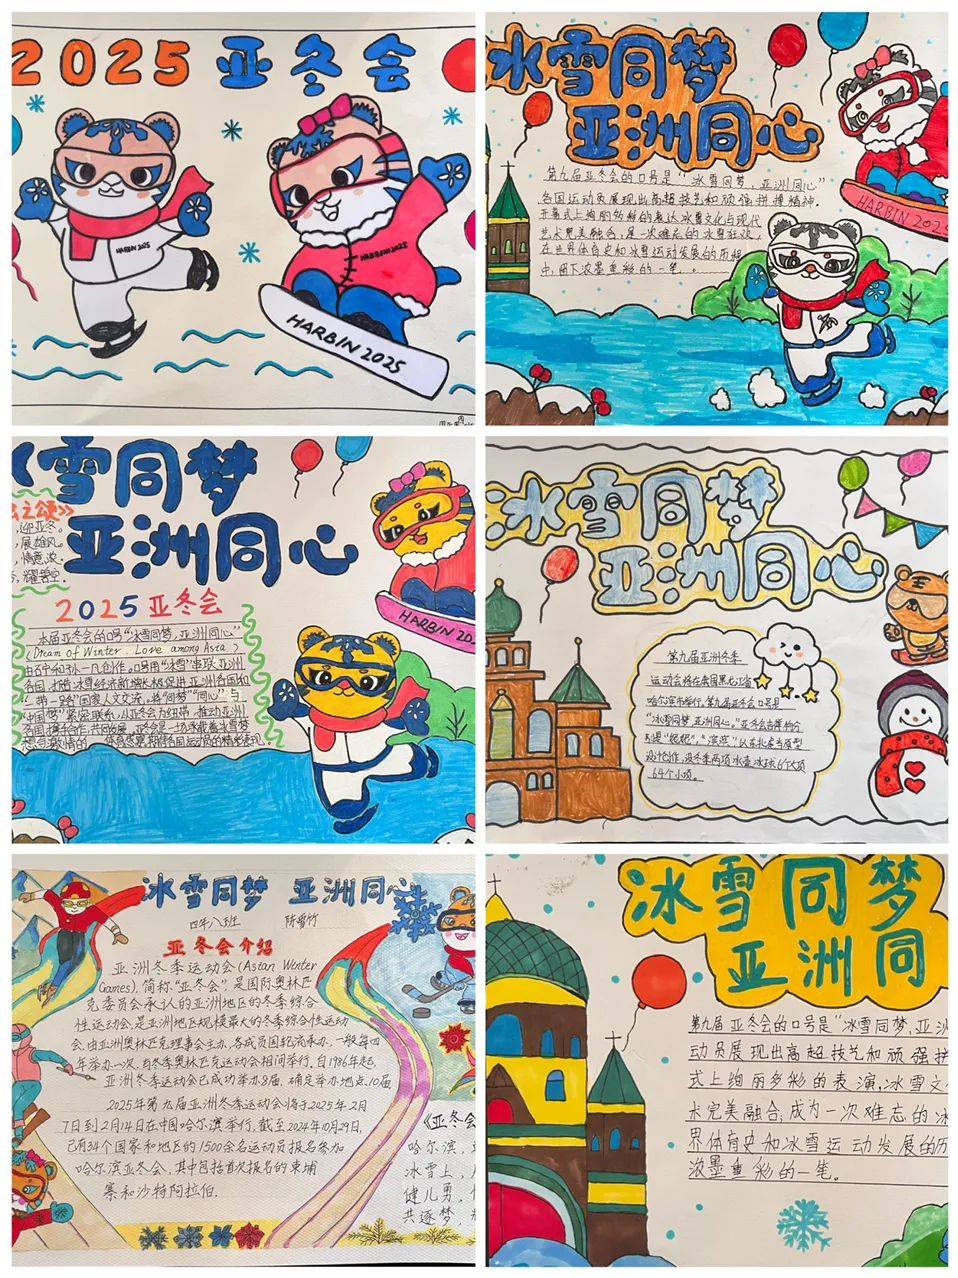 2025 亚冬会
HARBIN 2025
HARBIN 2025
HARBIN 2025
冰雪同梦
亚洲同心
第九届亚冬会的口号是“冰雪同梦，亚洲同心”
各国运动员展现出高超技艺和顽强拼搏精神。
开幕式上绚丽多彩的表演冰雪文化与现代
艺术完美融合，是一次难忘的冰雪狂欢，
在世界体育史和冰雪运动发展的历程
中，留下浓墨重彩的一笔。
HARBIN 202
雪同梦
亚洲同心
之颂》
迎亚冬。
展雄风。
情意浓。
耀碧空。
2025亚冬会
本届亚冬会的口号“冰雪同梦，亚洲同心”
(Dream of Winter. Love among Asia)
各国
“一带一路”国家人文交流。将“同梦”“同心”与
“中国梦”紧密联系，从亚冬会为纽带，推动亚洲
各国携手合作，共同发展，亚冬是一场承载着冰雪梦
HARBIN 20
冰雪同梦
亚洲同心
第九届亚洲冬季
运动会将在我国黑龙江省
哈尔滨市举行。第九届亚冬会口号是
“冰雪同梦 亚洲同心。”亚冬会吉祥物分
别是“妮妮”，“滨滨”以东北虎为原型
设计创作，设冬季两项 冰壶 冰球6个大项
64个小项。
冰雪同梦 亚洲同心
四年八班 陈雪竹
亚冬会介绍
亚洲冬季运动会(Asian Winter
Games)，简称“亚冬会”，是国际奥林匹
克委员会承认的亚洲地区的冬季综合
性运动会，是亚洲地区规模最大的冬季综合性运动
会，由亚洲奥林匹克理事会主办，各成员国轮流承办，一般每四
年举办一次，与冬季奥林匹克运动会相间举行，自1986年起，
亚洲冬季运动会已成功举办8届，确定举办地点10届
2025年第九届亚洲冬季运动会将于2025年2月
7日到2月14日在中国哈尔滨举行，截至2024年10月29日，
已有34个国家和地区的1500余名运动员报名参加
哈尔滨亚冬会，其中包括首次报名的柬埔
寨和沙特阿拉伯.
《亚冬会
哈尔滨，
冰雪上，
健儿勇，
共逐梦，
冰雪同梦
亚洲同
第九届亚冬会的口号是“冰雪同梦，亚洲
动员展现出高超技艺和顽强拼
式上绚丽多彩的表演，冰雪文
术完美融合，成为一次难忘的冰
界体育史和冰雪运动发展的历
浓墨重彩的一笔。